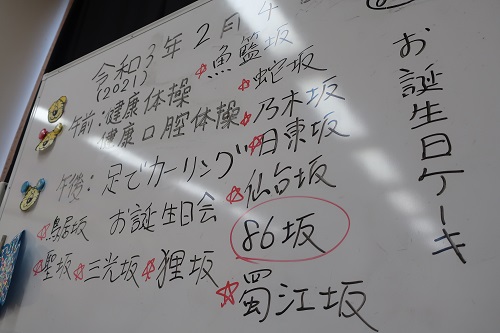 令和3年2月
(2021)
午前:健康体操
健康口腔体操
午後:足でカーリング
お誕生日会
☆魚籃坂
☆蛇坂
☆乃木坂
☆日東坂
☆仙台坂
86坂
☆蜀江坂
☆鳥居坂
☆聖坂 ☆三光坂 ☆狸坂
お誕生日ケーキ